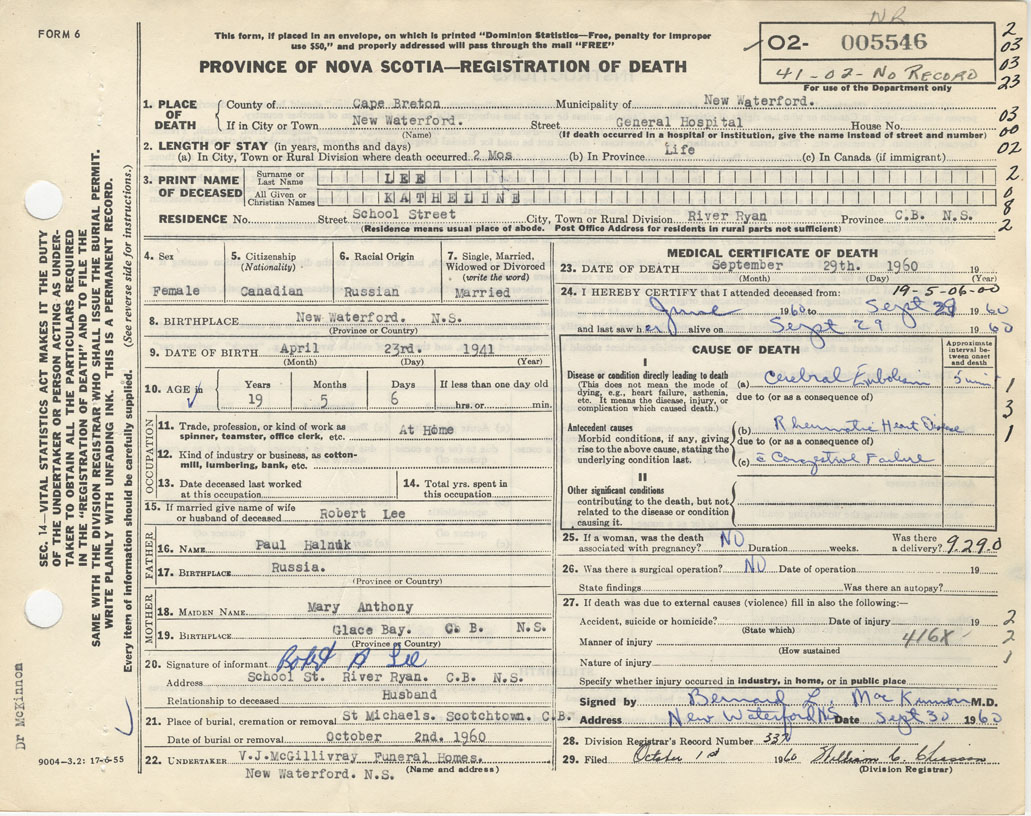 FORM 6
This form, if placed in an envelope, on which is printed "Dominion Statistics—Free, penalty for improper
use $50," and properly addressed will pass through the mail "FREE"
NR
02- 005546
41-02-No Record
For use of the Department only
PROVINCE OF NOVA SCOTIA—REGISTRATION OF DEATH
2
03
03
23
03
00
02
2
0
8
2
1. PLACE OF DEATH
County of Cape Breton Municipality of New Waterford.
If in City or Town New Waterford. Street General Hospital House No.
(Name) (If death occurred in a hospital or institution, give the name instead of street and number)
2. LENGTH OF STAY (in years, months and days)
(a) In City, Town or Rural Division where death occurred 2 Mos (b) In Province Life (c) In Canada (if immigrant)
3. PRINT NAME OF DECEASED
Surname or Last Name LEE
All Given or Christian Names KATHELINE
RESIDENCE No. Street School Street City, Town or Rural Division River Ryan Province C.B. N.S.
(Residence means usual place of abode. Post Office Address for residents in rural parts not sufficient)
4. Sex
Female
5. Citizenship
(Nationality)
Canadian
6. Racial Origin
Russian
7. Single, Married,
Widowed or Divorced
(write the word)
Married
8. BIRTHPLACE New Waterford. N.S.
(Province or Country)
9. DATE OF BIRTH April 23rd. 1941
(Month) (Day) (Year)
10. AGE Years 19 Months 5 Days 6 If less than one day old
hrs. or min.
OCCUPATION
11. Trade, profession, or kind of work as At Home
spinner, teamster, office clerk, etc.
12. Kind of industry or business, as cotton-
mill, lumbering, bank, etc.
13. Date deceased last worked
at this occupation
14. Total yrs. spent in
this occupation
15. If married give name of wife
or husband of deceased Robert Lee
FATHER
16. NAME Paul Halnuk
17. BIRTHPLACE Russia.
(Province or Country)
MOTHER
18. MAIDEN NAME Mary Anthony
19. BIRTHPLACE Glace Bay. C. B. N.S.
(Province or Country)
20. Signature of informant Robert A Lee
Address School St. River Ryan. C.B. N.S.
Relationship to deceased Husband
21. Place of burial, cremation or removal St Michaels. Scotchtown. C.B.
Date of burial or removal October 2nd. 1960
22. UNDERTAKER V.J.McGillivray Funeral Homes.
New Waterford. N.S. (Name and address)
MEDICAL CERTIFICATE OF DEATH
23. DATE OF DEATH September 29th. 1960 19
(Month) (Day) (Year)
19-5-06-00
24. I HEREBY CERTIFY that I attended deceased from:
June 1960 to Sept 29 1960
and last saw her alive on Sept 29 1960
CAUSE OF DEATH
Approximate
interval be-
tween onset
and death
I
Disease or condition directly leading to death
(This does not mean the mode of
dying, e.g., heart failure, asthenia,
etc. It means the disease, injury, or
complication which caused death.)
(a) Cerebral Embolism 5 min
due to (or as a consequence of)
Antecedent causes
Morbid conditions, if any, giving
rise to the above cause, stating the
underlying condition last.
(b) Rheumatic Heart Disease
due to (or as a consequence of)
(c) c̄ Congestive Failure
1
3
1
II
Other significant conditions
contributing to the death, but not
related to the disease or condition
causing it.
25. If a woman, was the death
associated with pregnancy? NO Duration weeks. Was there
a delivery? 9290
26. Was there a surgical operation? NO Date of operation 19
State findings Was there an autopsy?
27. If death was due to external causes (violence) fill in also the following:—
Accident, suicide or homicide? Date of injury 19
(State which)
Manner of injury 416X
(How sustained
Nature of injury
2
2
1
Specify whether injury occurred in industry, in home, or in public place
Signed by Bernard L. MacKinnon M.D.
Address New Waterford NS Date Sept 30 1960
28. Division Registrar's Record Number
29. Filed October 1st 1960 William C Chiasson
(Division Registrar)
SEC. 14—VITAL STATISTICS ACT MAKES IT THE DUTY
OF THE UNDERTAKER OR PERSON ACTING AS UNDER-
TAKER TO OBTAIN ALL THE PARTICULARS REQUIRED
IN THE "REGISTRATION OF DEATH" AND TO FILE THE
SAME WITH THE DIVISION REGISTRAR WHO SHALL ISSUE THE BURIAL PERMIT.
WRITE PLAINLY WITH UNFADING INK. THIS IS A PERMANENT RECORD.
Every item of information should be carefully supplied. (See reverse side for instructions.)
Dr McKinnon
9004-3.2: 17-6-55